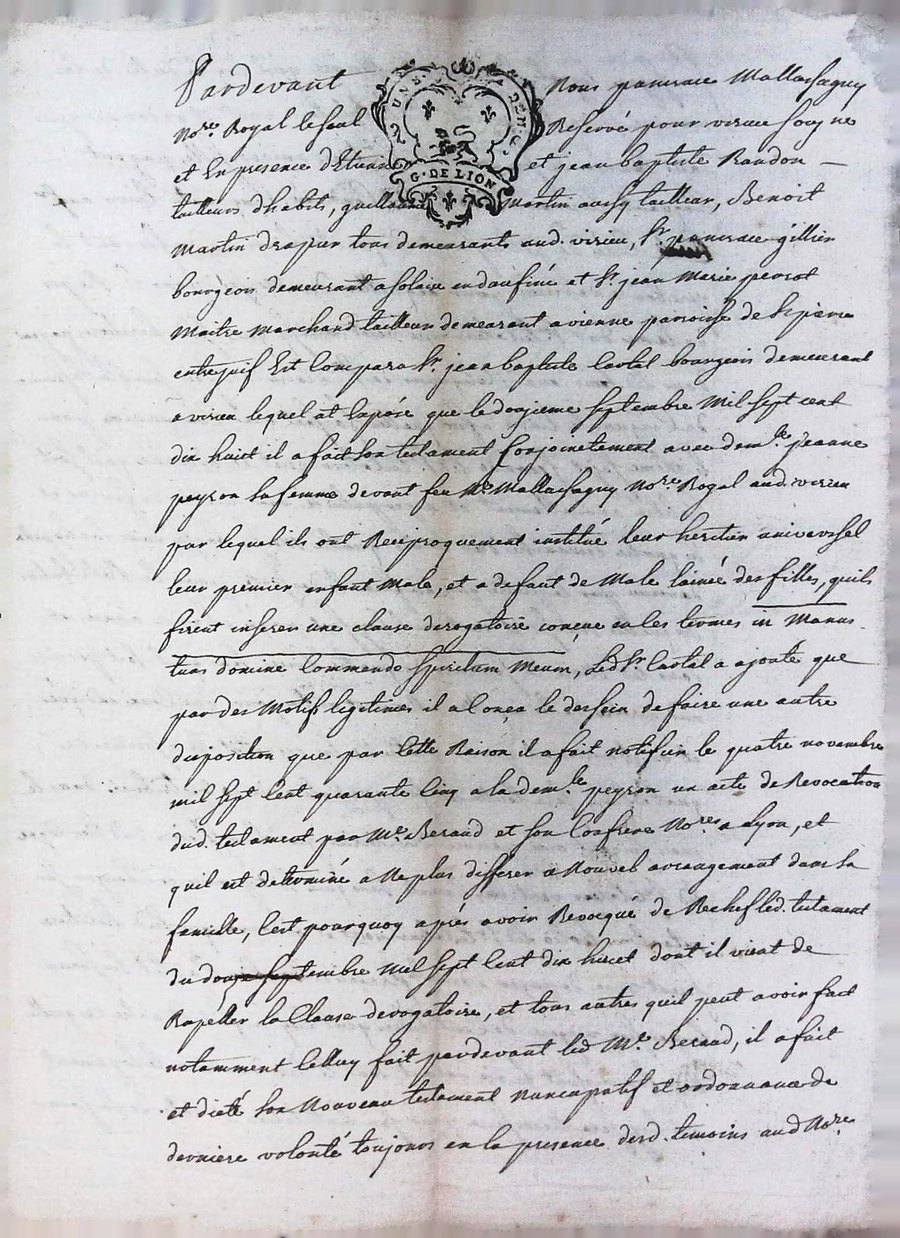 Pardevant Nous pancrace Mallassagny
UN S. N. A DEMI
G. DE LION
No.re Royal le seul Reservé pour virieu soug.ne
et en presence d'Etienne et jean baptiste Baudon —
tailleurs dhabits, guillaume Martin aussy tailleur, Benoit
Martin drapier tous demeurants aud. virieu, Sr. pancrace gillier
bourgeois demeurant a solaise en daufiné et Sr. jean Marie perrot
Maitre Marchand tailleur demeurant a vienne paroisse de St pierre
entre juif Est Comparu Sr. jean baptiste Cartal bourgeois demeurant
a virieu lequel at Exposé que le douzieme septembre Mil sept cent
dix huict il a fait son testament Conjoinctement avec dem.lle jeanne
peyron sa femme devant feu Me. Mallassagny No.re Royal aud. virieu
par lequel ils ont Reciproquement institué leur heritier universel
leur premier enfant Male, et a defaut de Male lainée des filles, quils
firent inserer une clause derogatoire conçue en les termes in Manus
tuas domine Commendo spiritum Meum, Led. Sr Cartal a ajouté que
par des Motifs legitimes il a Conçu le dessein de faire une autre
disposition que par Cette Raison il a fait notifier le quatre novembre
mil sept Cent quarante Cinq a la dem.lle peyron un acte de Revocation
dud. testament par Me. Beraud et son Confrere No.res a Lyon, et
quil est determiné a Ne plus differer Nouvel arrangement dans sa
famille, Cest pourquoy aprés avoir Revocqué de Rechef led. testament
du douze septembre Mil sept Cent dix huict dont il vient de
Rapeller la Clause derogatoire, et tous autres quil peut avoir fait
notamment Celluy fait pardevant led Me. Beraud, il a fait
et dicté son Nouveau testament Nuncupatif et ordonnance de
derniere volonté toujours en la presence desd. temoins aud No.re